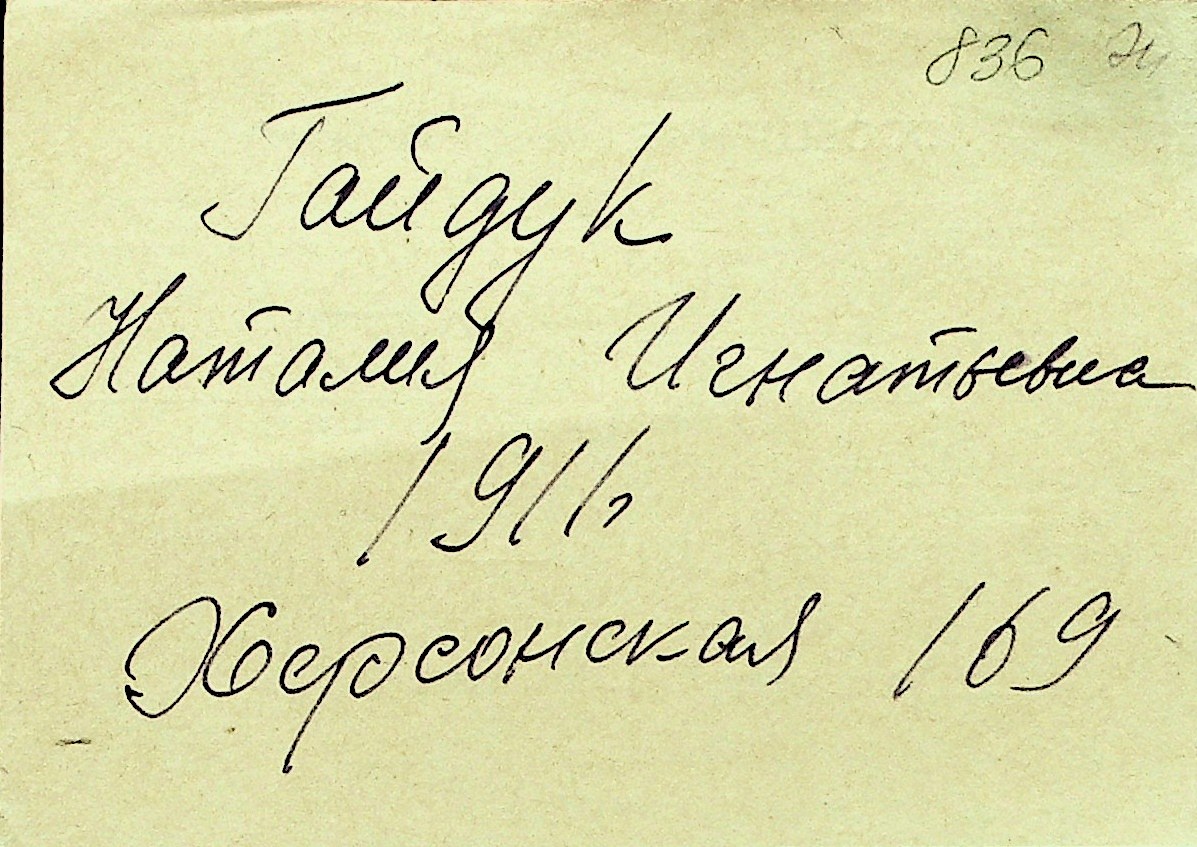 836
Гайдук
Наталия Игнатьевна
1911,
Херсонская 169